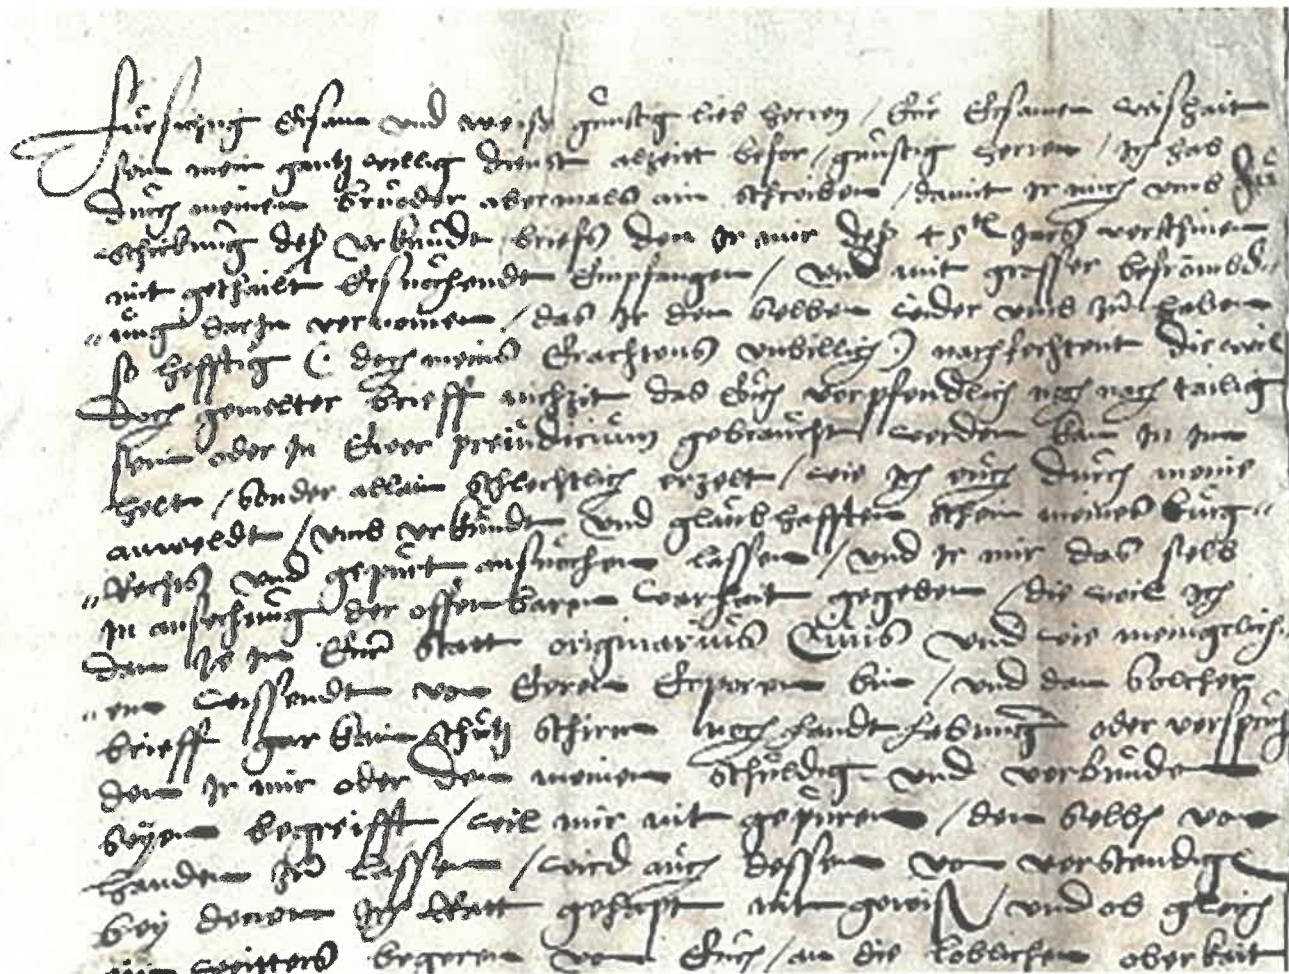 Fürsichtig Ersam und weiß günstig lieb herren / Eür Ersamen weishait
sein mein gantz willig dienst alzeit befor / günstig herren / Ich hab
durch meinen brüoder abermals ain schreiben / damit Ir mich umb
schickung deß urkündt briefs den Ir mir deß 45ten Jars verschinen
mit gethailt Ersüchendt Empfangen / und mit grosser befrömbd„
„ung darin vernomen / das Ir dem selben wider umb zu haben
so hefftig ( doch meins Erachtens unbillich ) nachfechtent die weil
doch gemelter brieff nichzit das Eüch verpfendlich noch nach tailig
sein oder In Ewer preiüdicium gebraücht werden kan In im
helt / sonder allain schlechtlich erzelt / wie Ich eüch durch meine
anweldt / umb urkündt und glaubhafften schein meines bürg„
„Rechts und gepürt ansüochen lassen / und Ir mir das selb
In ansechung der offenbaren warhait gegeben / die weil Ich
dan ie In Eüer statt originarius Civis und wie menigclich„
„em wissendt von Eeren Erporen bin / und dan solcher
brieff gar kain schutz schirm noch handthabung oder versprüch
den Ir mir oder den meinen schuldig und verbunden
seyen begreifft / wil mir nit gepüren / den selben von
handen zu lassen / wird auch dessen von verstendigen
bey denen Ich Ratt gehapt nit gewisen / und ob gleich
weitters begeren von Eüch / an die loblichen oberkait